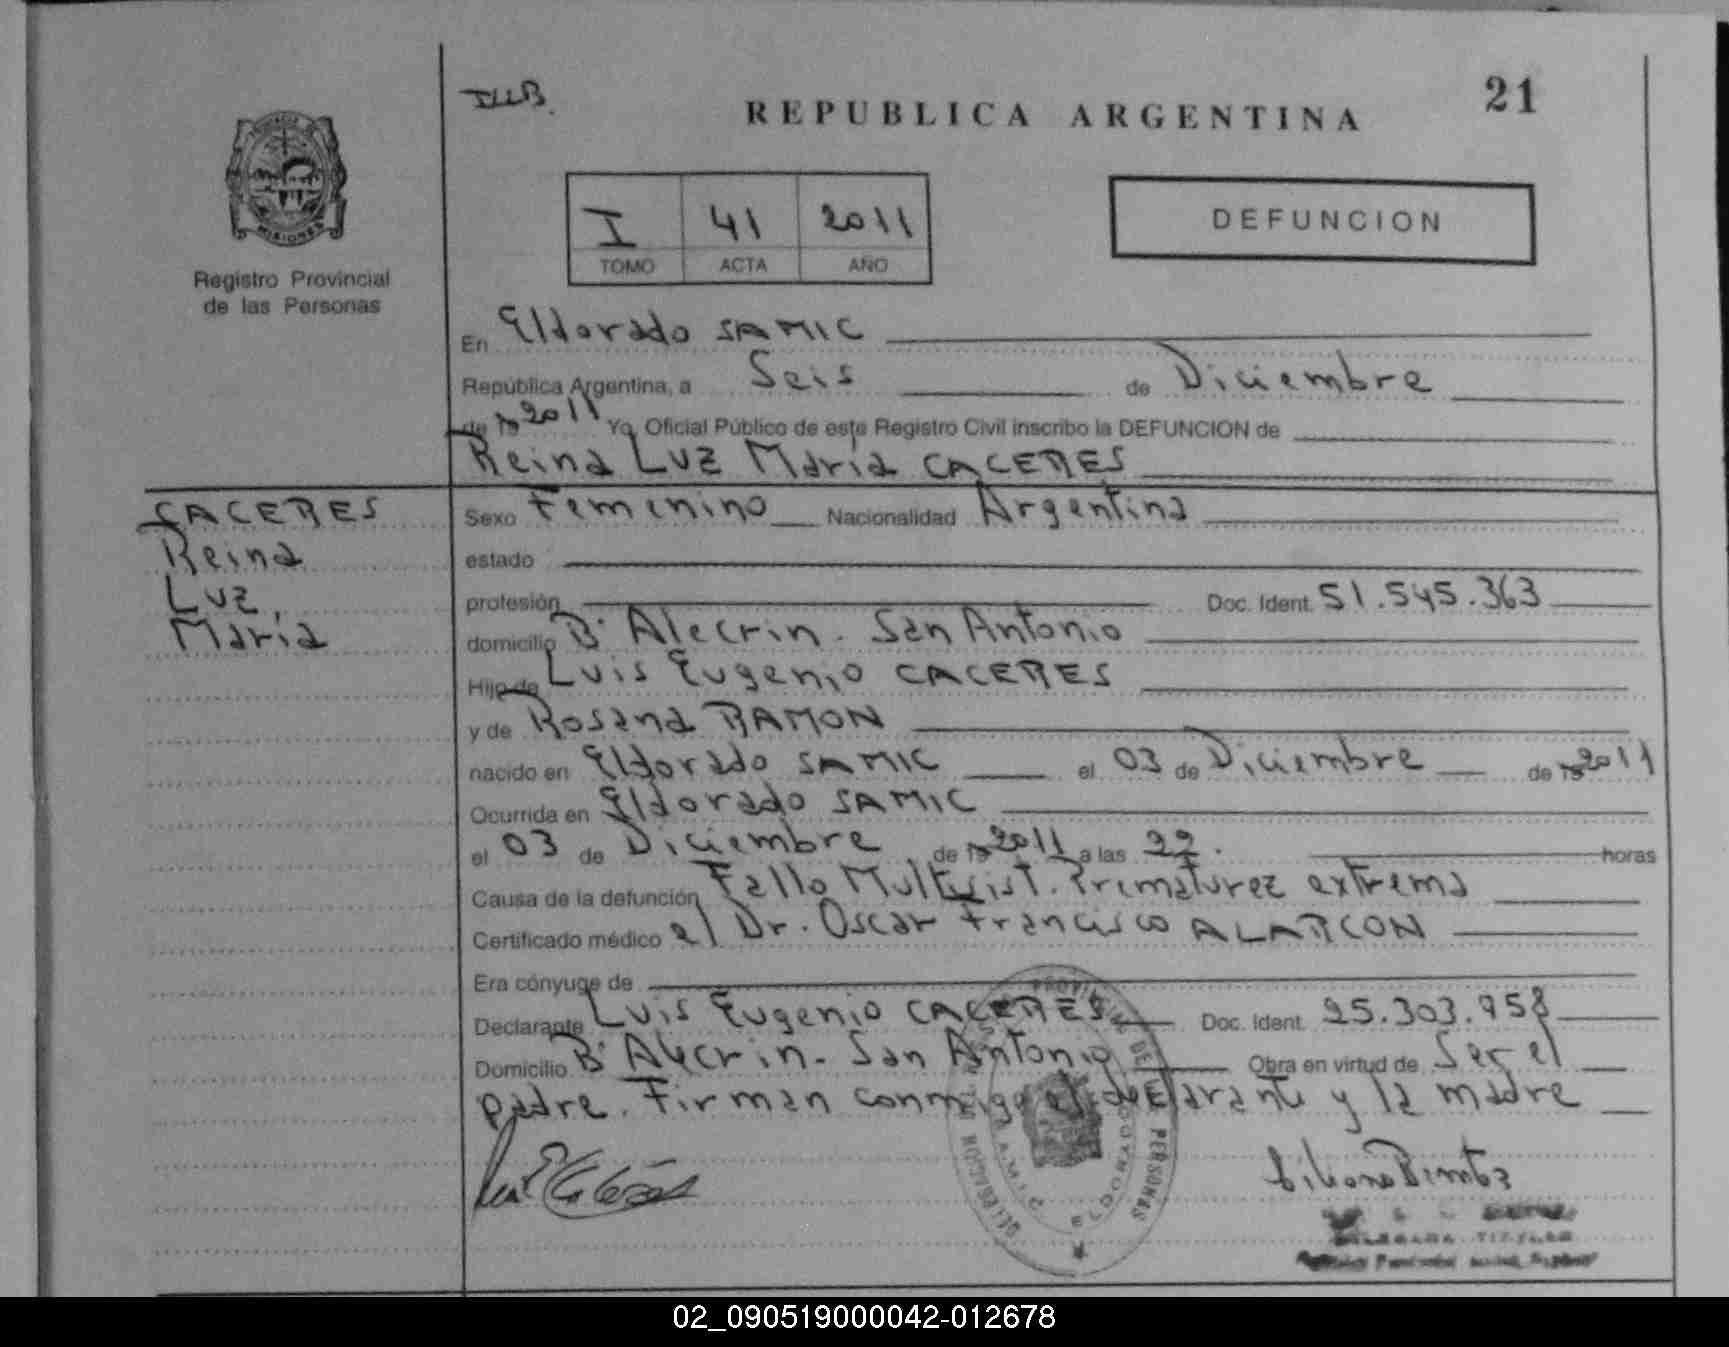 21
REPUBLICA ARGENTINA
MISIONES
Registro Provincial
de las Personas
I 41 2011
TOMO ACTA AÑO
DEFUNCION
En Eldorado SAMIC
República Argentina, a Seis de Diciembre
de 19 2011 Yo, Oficial Público de este Registro Civil inscribo la DEFUNCION de
Reina Luz María CACERES
CACERES
Reina
Luz,
María
Sexo Femenino Nacionalidad Argentina
estado
profesión Doc. Ident. 51.545.363
domicilio B° Alecrin - San Antonio
Hijo de Luis Eugenio CACERES
y de Rosana RAMON
nacido en Eldorado SAMIC el 03 de Diciembre de 19 2011
Ocurrida en Eldorado SAMIC
el 03 de Diciembre de 19 2011 a las 22. horas
Causa de la defunción Fallo Multisist. Prematurez extrema
Certificado médico el Dr. Oscar Francisco ALARCON
Era cónyuge de
Declarante Luis Eugenio CACERES Doc. Ident. 25.303.958
Domicilio B° Alecrin - San Antonio Obra en virtud de Ser el
padre. Firman conmigo el declarante y la madre
DELEGACION
DE PERSONAS
ELDORADO
02_090519000042-012678